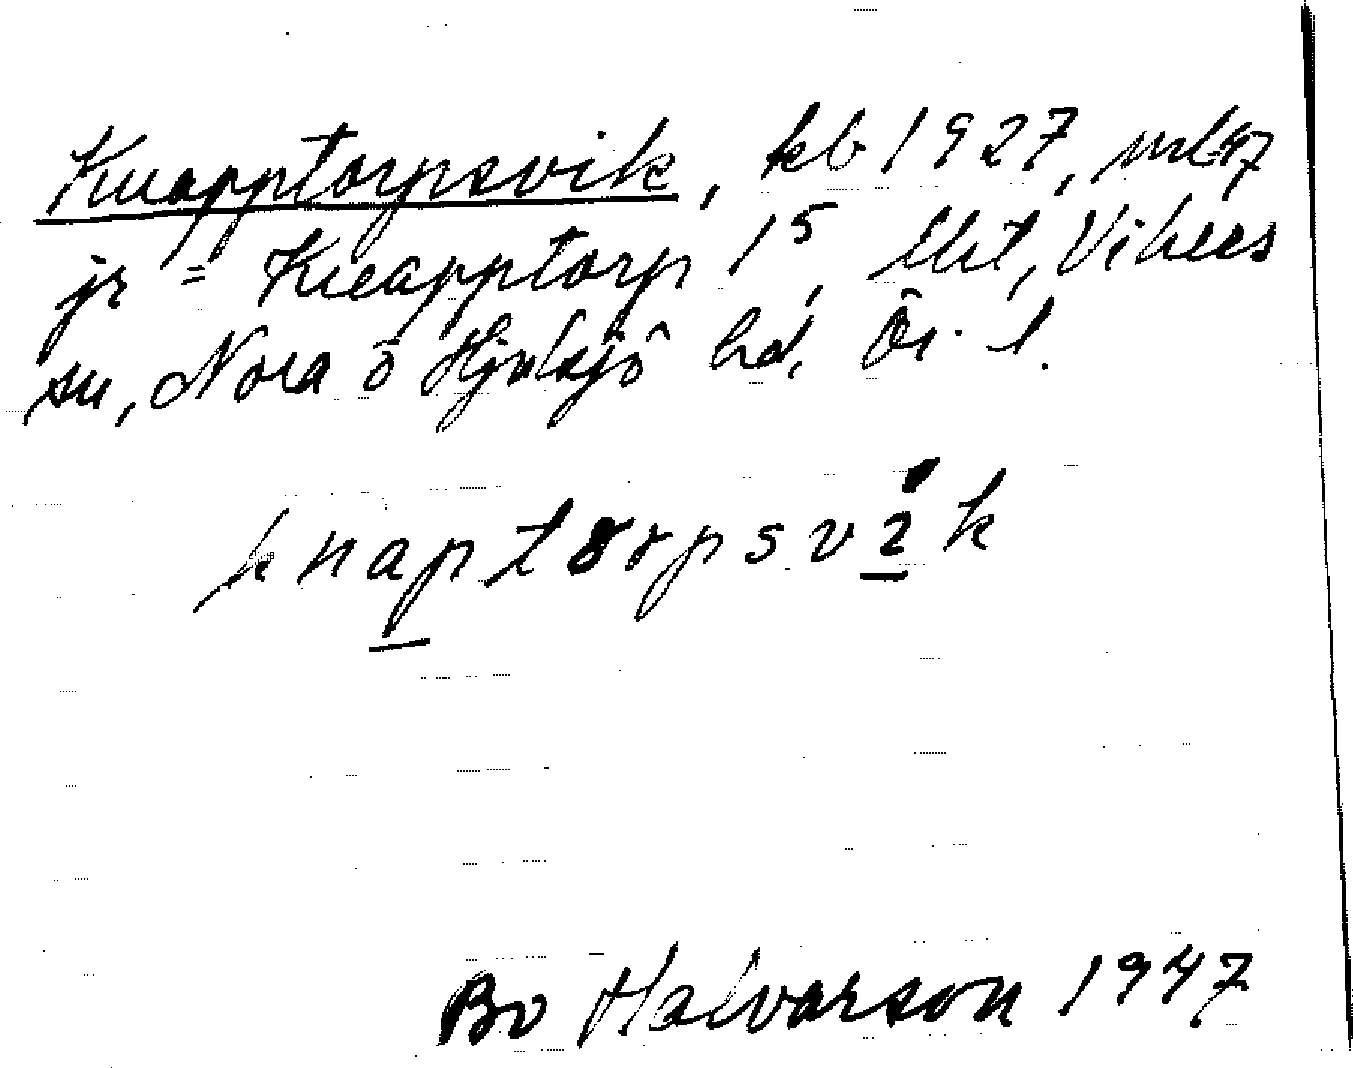 Knapptorpsvik, kb 1927, ml 47
jr = Knapptorp 1⁵, Vikers
sn, Nora o Hjulsjö hd, Ör. l.
knaptorpsvik
Bo Halvarson 1947